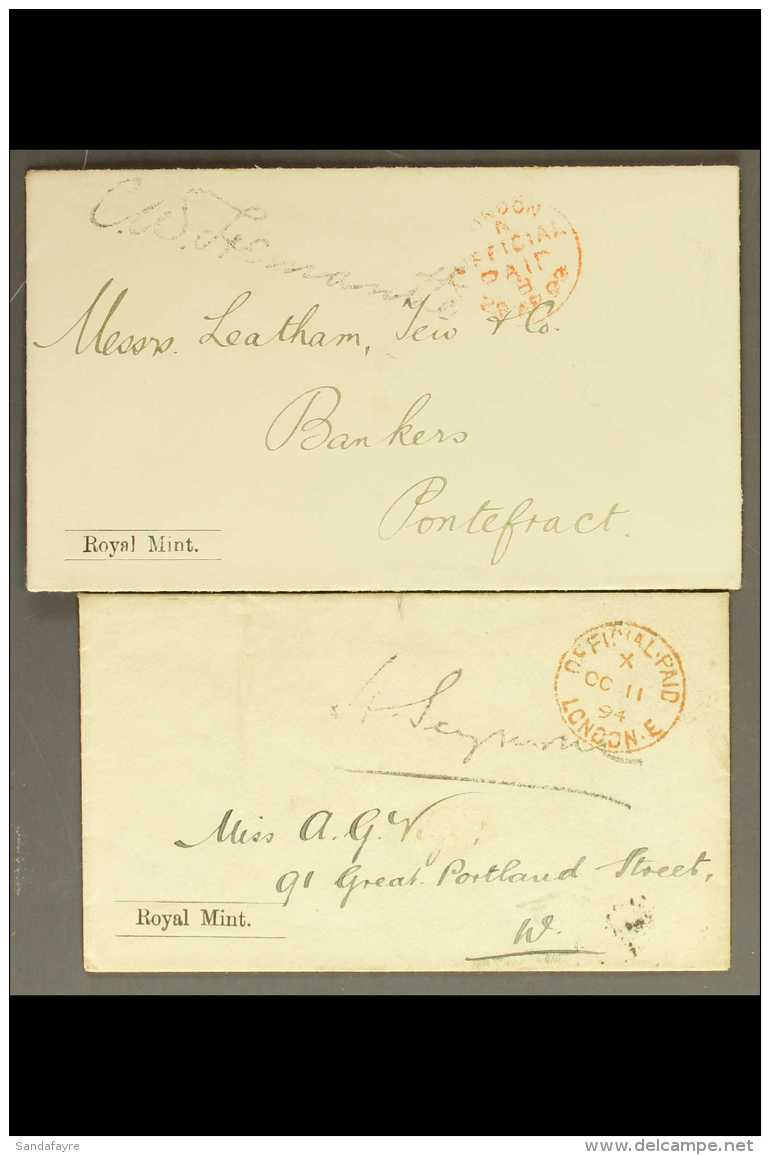 LONDON
OFFICIAL
PAID
Messrs. Leatham, Tew & Co.
Bankers
Pontefract.
Royal Mint.
OFFICIAL·PAID
X
OC 11
94
LONDON·E
Miss A.G.
91 Great Portland Street,
W.
Royal Mint.
Sandafayre
www.delcampe.net